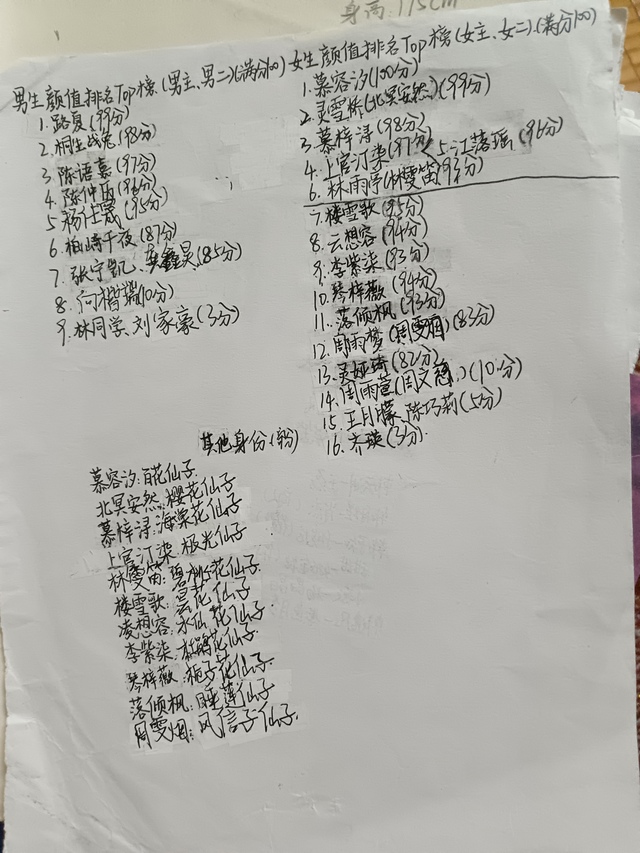 身高:175cm
男生颜值排名Top榜.(男主、男二)(满分100)
1.路夏(99分)
2.桐生战兔(98分)
3.陈语嘉(97分)
4.陈仲雨(96分)
5.杨仕晟(95分)
6.柏崎千夜(87分)
7.张宁凯、吴鑫昊(85分)
8.何楷瑞(10分)
9.林同学、刘家豪(3分)
女生颜值排名Top榜(女主、女二).(满分100)
1.慕容汐(100分)
2.灵雪烁(北冥安然)(99分)
3.慕梓浔(98分)
4.上官汀染(97分) 5.江落瑶(96分)
6.林雨婷(林雯茵)(93分)
7.楼雪歌(85分)
8.云想容(94分)
9.李紫柒(93分)
10.琴梓薇(94分)
11.落倾枫(93分)
12.周雨梦(周雯烟)(83分)
13.灵娅琦(82分)
14.周雨萱(周文慧)(10分)
15.王月朦、陈巧莉(5分)
16.齐瑛(3分)
其他身份.
慕容汐:百花仙子
北冥安然:樱花仙子
慕梓浔:海棠花仙子
上官汀染:极光仙子
林雯茵:碧桃花仙子
楼雪歌:昙花仙子
凌想容:水仙花仙子
李紫柒:杜鹃花仙子
琴梓薇:栀子花仙子
落倾枫:睡莲仙子
周雯烟:风信子仙子.